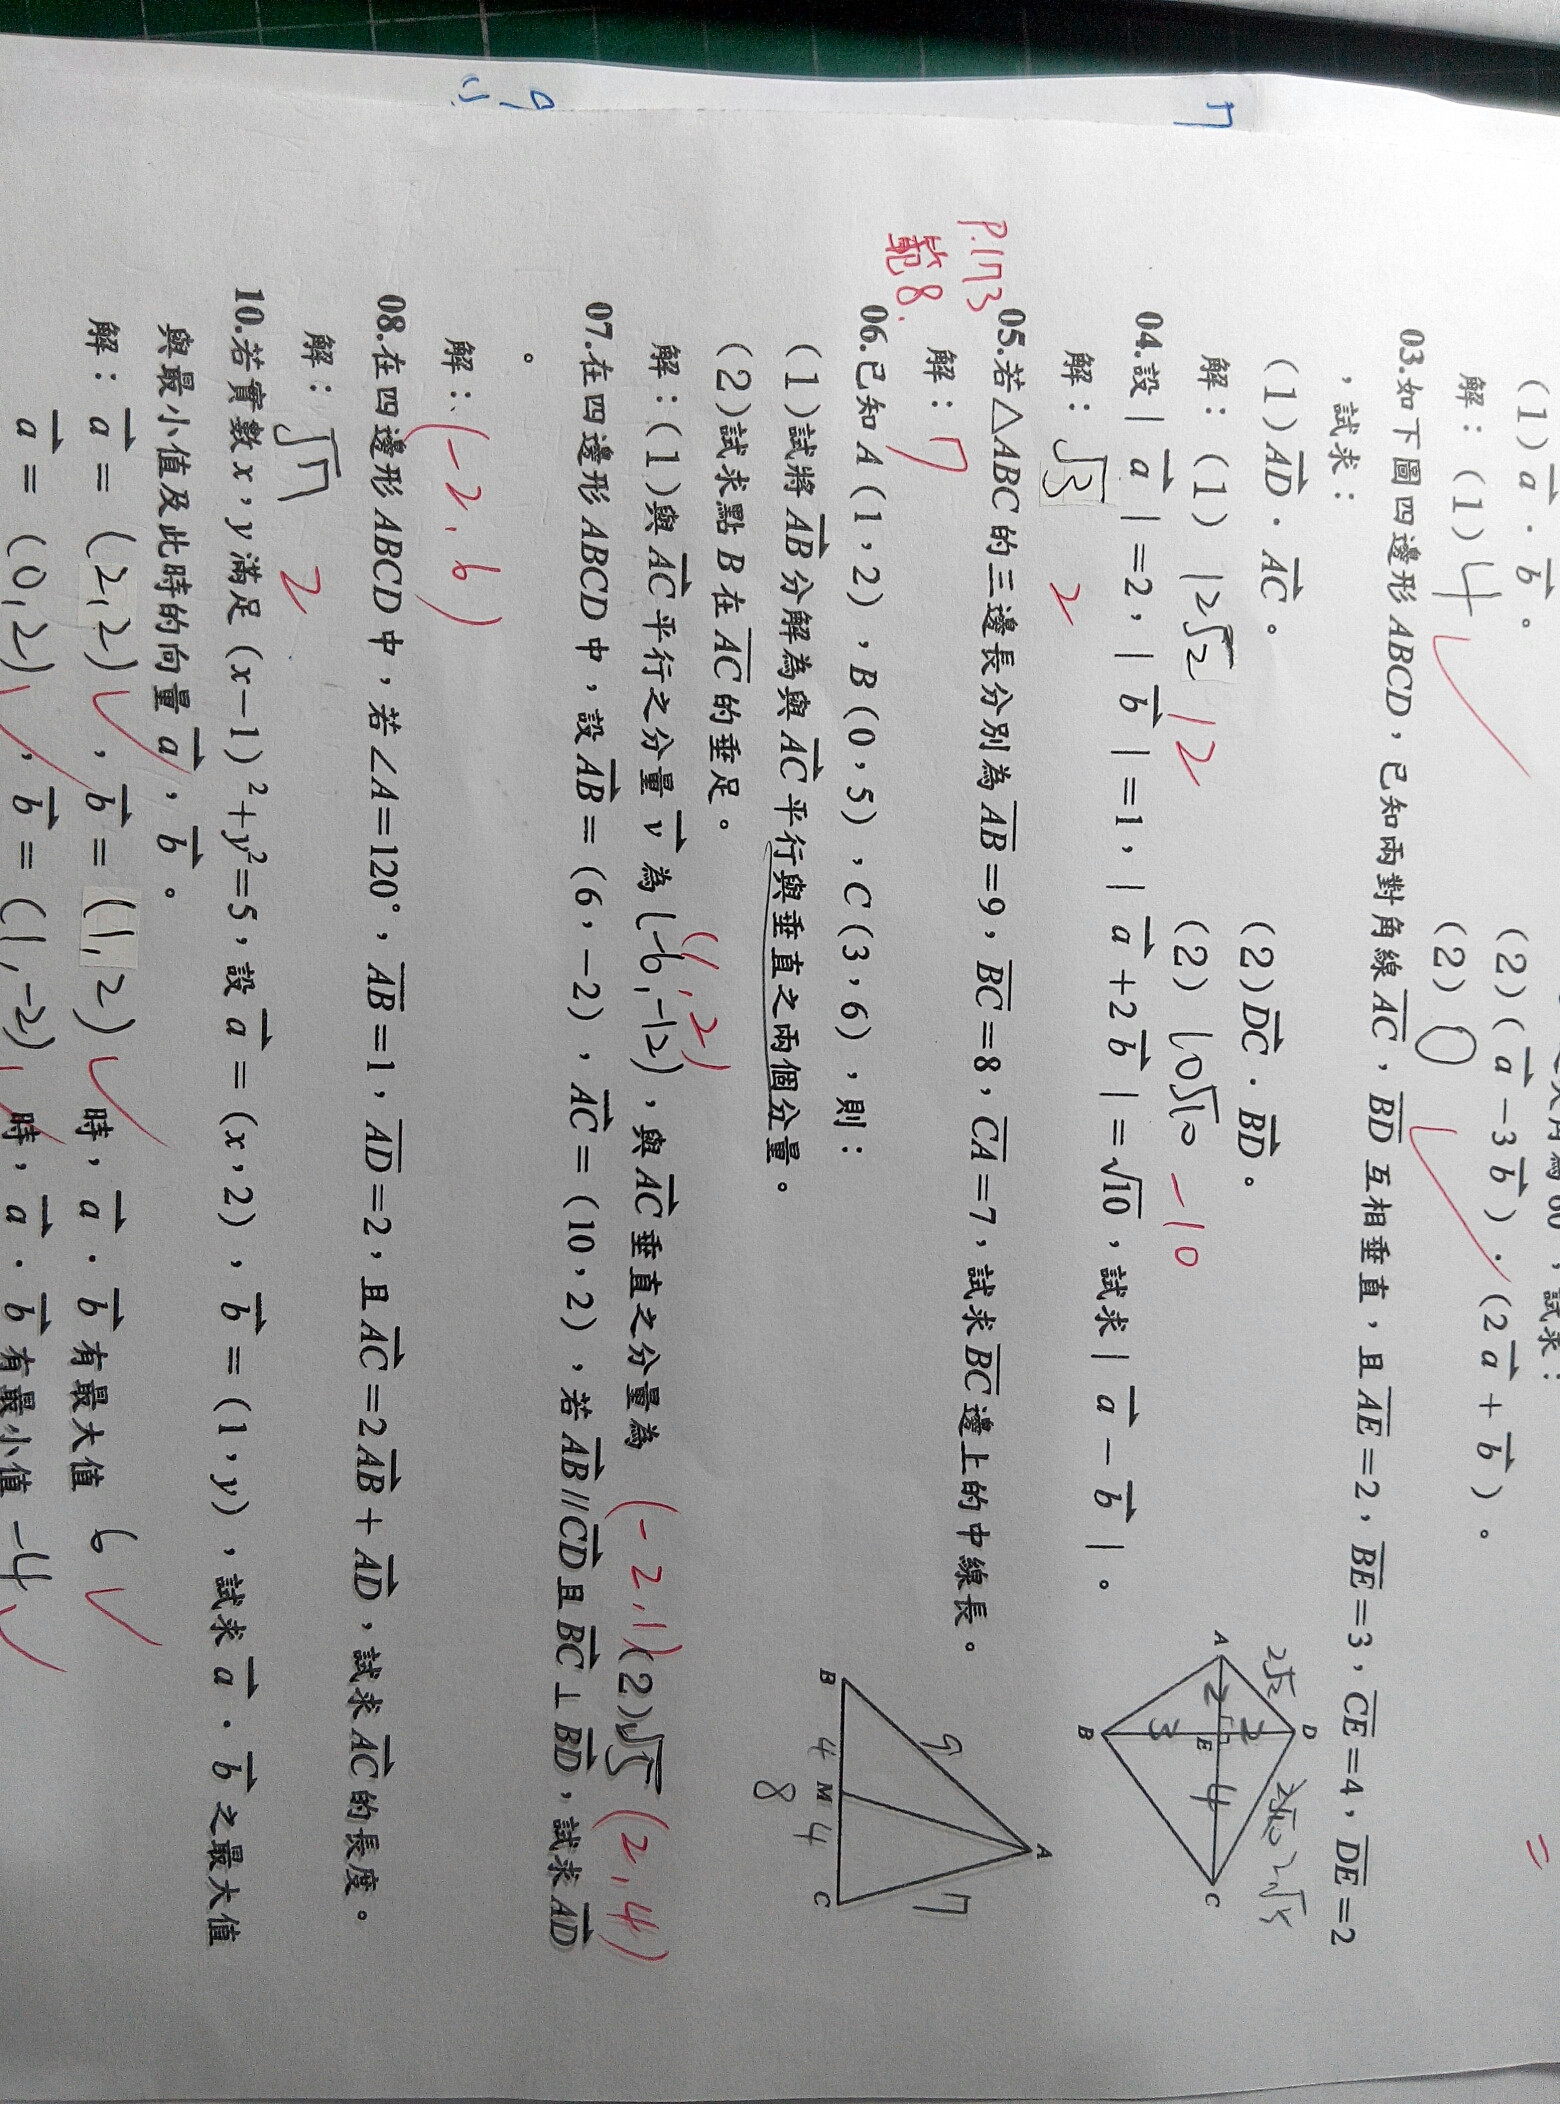 (1) a⃗·b⃗。 (2)(a⃗-3b⃗)·(2a⃗+b⃗)。
解：(1) 4 (2) 0
03.如下圖四邊形ABCD，已知兩對角線AC，BD互相垂直，且AE=2，BE=3，CE=4，DE=2
，試求：
(1)AD⃗·AC⃗。 (2)DC⃗·BD⃗。
解：(1) 12√2 12 (2) 10√10 -10
A 2 E 4 C
D 2 3 B
2√2
2√5
04.設|a⃗|=2，|b⃗|=1，|a⃗+2b⃗|=√10，試求|a⃗-b⃗|。
解：√3 2
P.173
範8.
05.若△ABC的三邊長分別為AB=9，BC=8，CA=7，試求BC邊上的中線長。
解：7
A
9 7
B 4 M 4 C
8
06.已知A(1，2)，B(0，5)，C(3，6)，則：
(1)試將AB⃗分解為與AC⃗平行與垂直之兩個分量。
(2)試求點B在AC的垂足。
(1,2)
解：(1)與AC⃗平行之分量v⃗為(-6,-12)，與AC⃗垂直之分量為 (-2,1) (2)√5 (2,4)
07.在四邊形ABCD中，設AB⃗=(6，-2)，AC⃗=(10，2)，若AB⃗//CD⃗且BC⃗⊥BD⃗，試求AD⃗
。
解：(-2,6)
08.在四邊形ABCD中，若∠A=120°，AB=1，AD=2，且AC⃗=2AB⃗+AD⃗，試求AC⃗的長度。
解：√7 2
10.若實數x，y滿足(x-1)²+y²=5，設a⃗=(x，2)，b⃗=(1，y)，試求a⃗·b⃗之最大值
與最小值及此時的向量a⃗，b⃗。
解：a⃗=(2,2)，b⃗=(1,2)時，a⃗·b⃗有最大值 6
a⃗=(0,2)，b⃗=(1,-2)時，a⃗·b⃗有最小值 -4